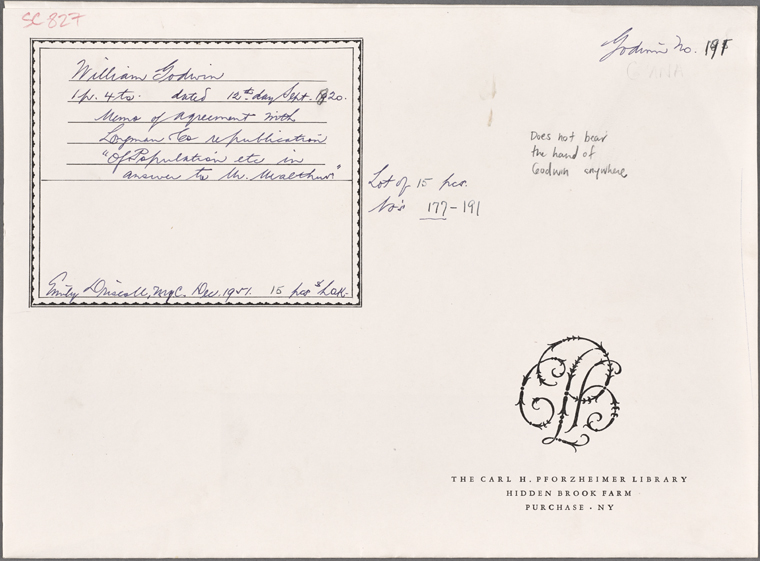 SC 827
Godwin No. 191
William Godwin
1 p. 4to. dated 12th day Sept. 1820.
Memo of agreement with
Longman Co republication
"Of Population etc in
answer to Mr. Malthus"
Does not bear
the hand of
Godwin anywhere
Lot of 15 pcs.
No's 177-191
Emily Driscoll, NYC. Dec. 1951. 15 pcs
THE CARL H. PFORZHEIMER LIBRARY
HIDDEN BROOK FARM
PURCHASE · NY